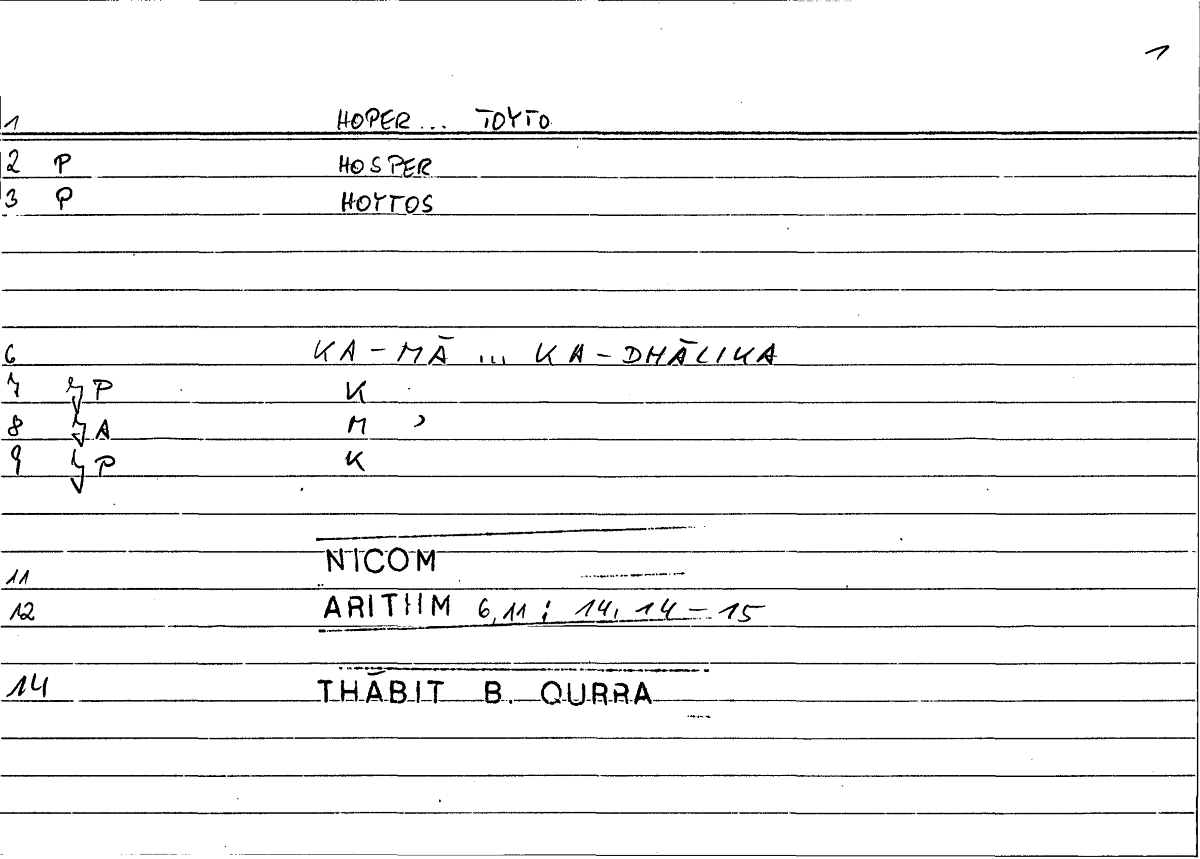 1
1 HOPER... TOYTO
2 P HOSPER
3 P HOYTOS
6 KA-MĀ ... KA-DHĀLIKA
7 P K
8 A M ʾ
9 P K
11 NICOM
12 ARITHM 6,11 ; 14,14-15
14 THĀBIT B. QURRA